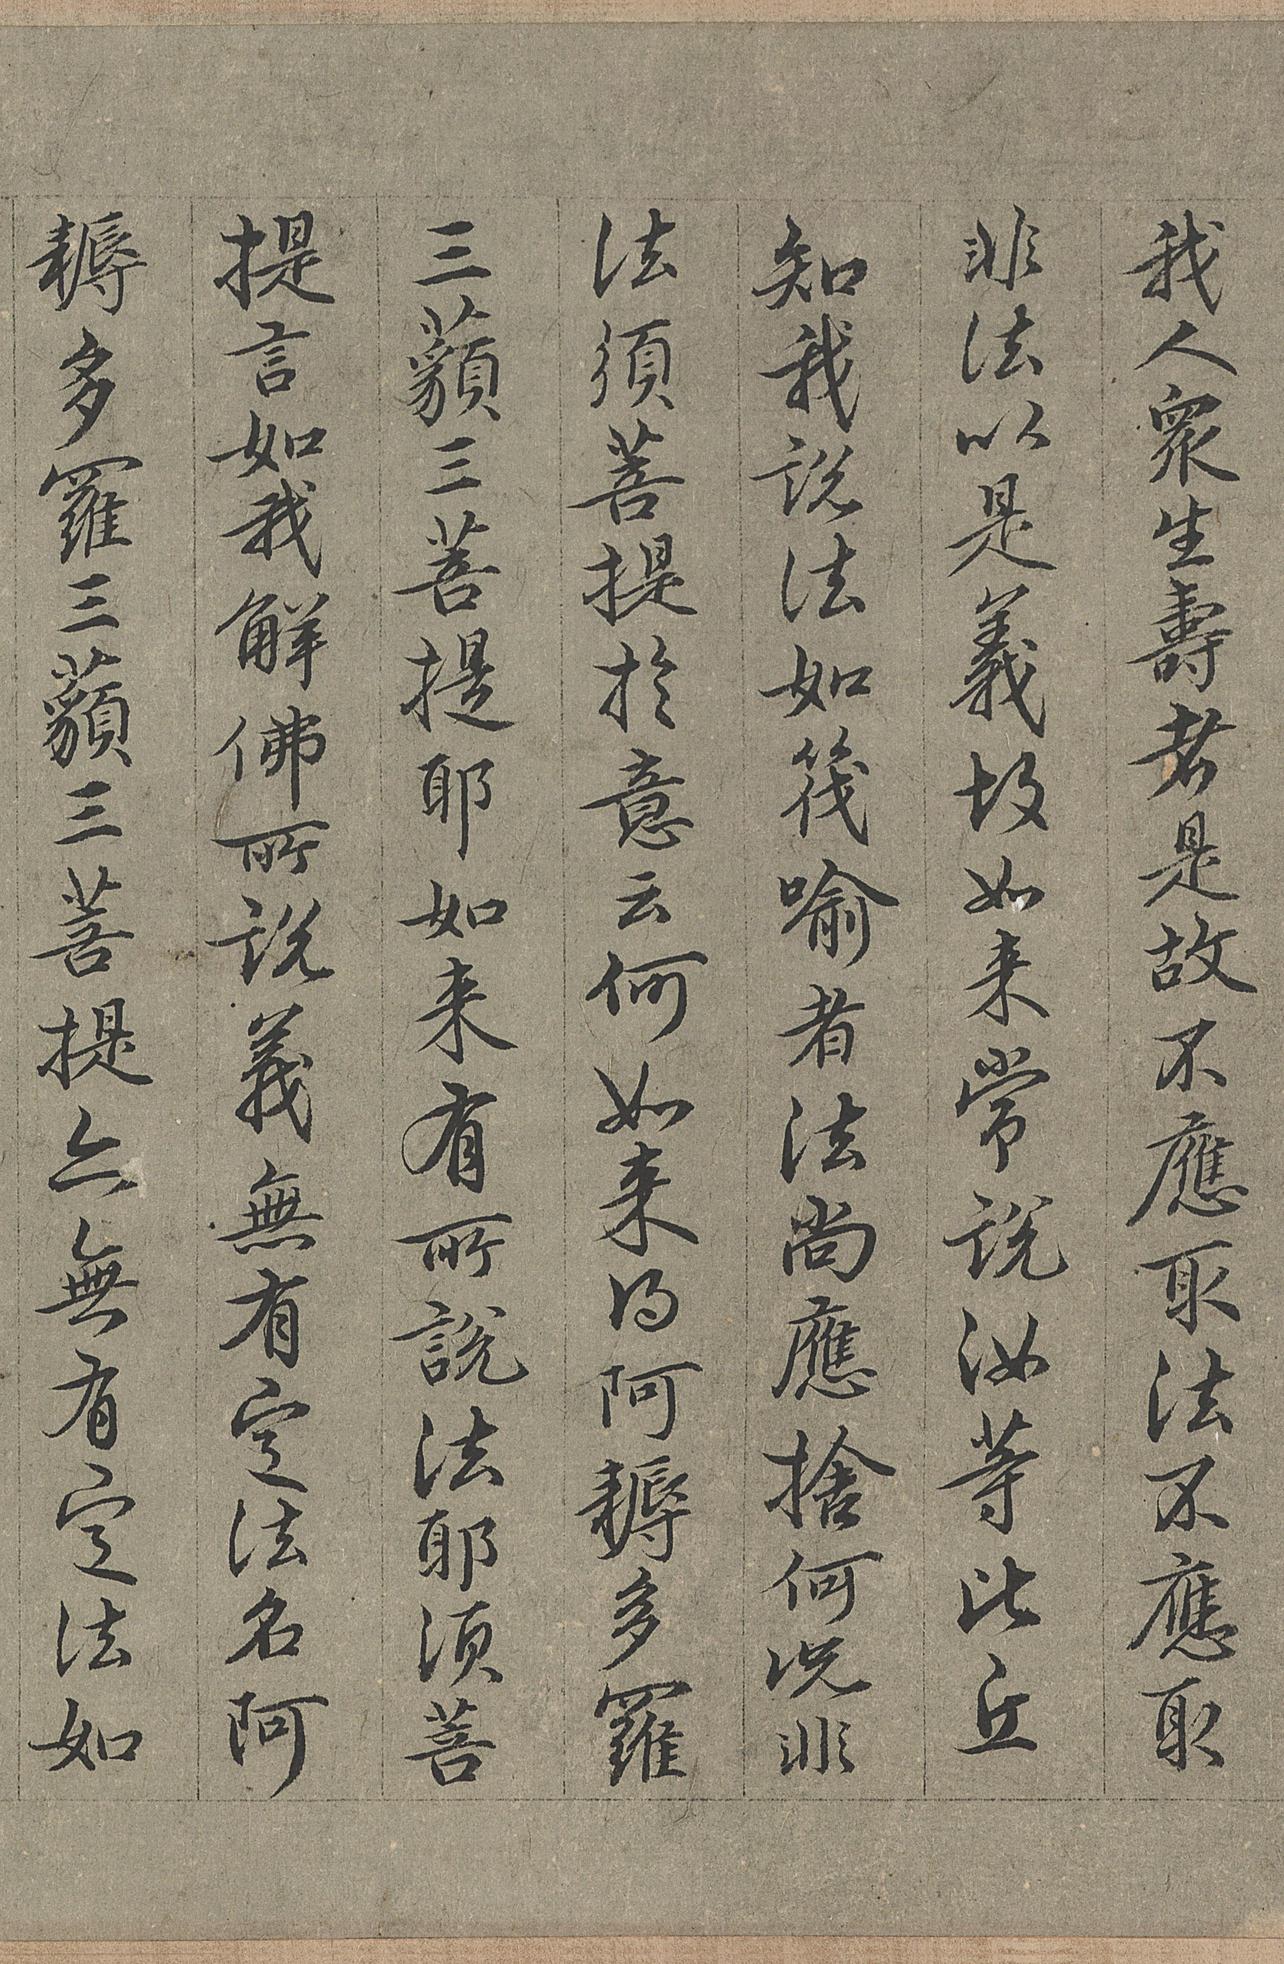 我人衆生壽者是故不應取法不應取
非法以是義故如来常説汝等比丘
知我説法如筏喻者法尚應捨何況非
法須菩提於意云何如来得阿耨多羅
三藐三菩提耶如来有所説法耶須菩
提言如我解佛所説義無有定法名阿
耨多羅三藐三菩提亦無有定法如